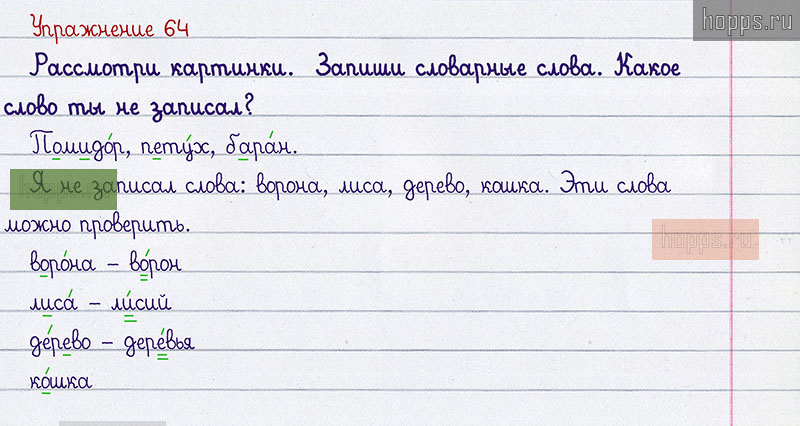 hopps.ru
Упражнение 64
Рассмотри картинки. Запиши словарные слова. Какое
слово ты не записал?
Помидо́р, пету́х, бара́н.
Я не записал слова: ворона, лиса, дерево, кошка. Эти слова
можно проверить.
hopps.ru
воро́на – во́рон
лиса́ – ли́сий
де́рево – дере́вья
ко́шка